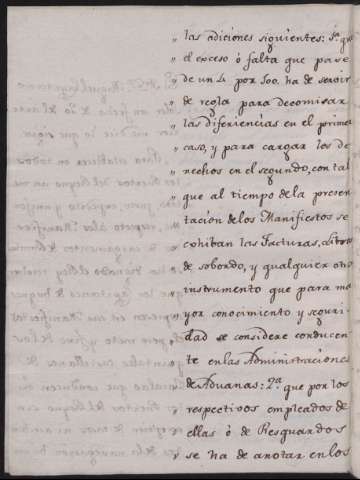 " las adiciones siguientes: 1.a que
" el exceso ó falta que pase
" de un 4. por 100. ha de servir
" de regla para decomisar
" las diferiencias en el primer
" caso, y para cargar los de-
" rechos en el segundo, con tal
" que al tiempo de la presen-
" tación de los Manifiestos se
" cohiban las Facturas, Libros
" de sobordo, y qualquier otro
" instrumento que para ma-
" yor conocimiento y seguri-
" dad se considere conducen-
" te en las Administraciones
" de Aduanas: 2.a que por los
" respectivos empleados de
" ellas ó de Resguardos
" se ha de anotar en los